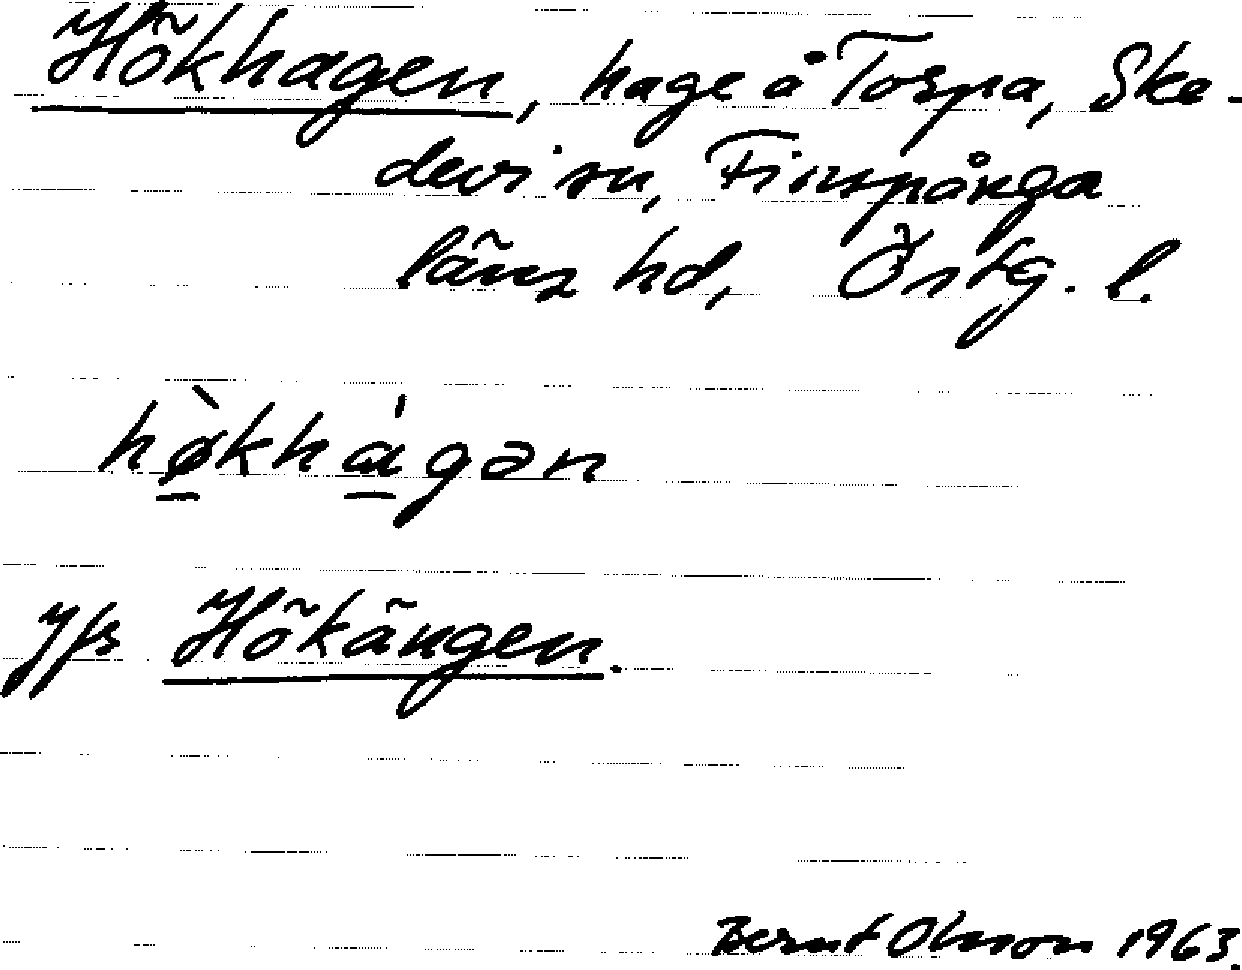 Hökhagen, hage å Torpa, Ske-
devi sn, Finspånga
läns hd, Östg. l.
hø̀khа́gən
Jfr Hökängen.
Bernt Olsson 1963.